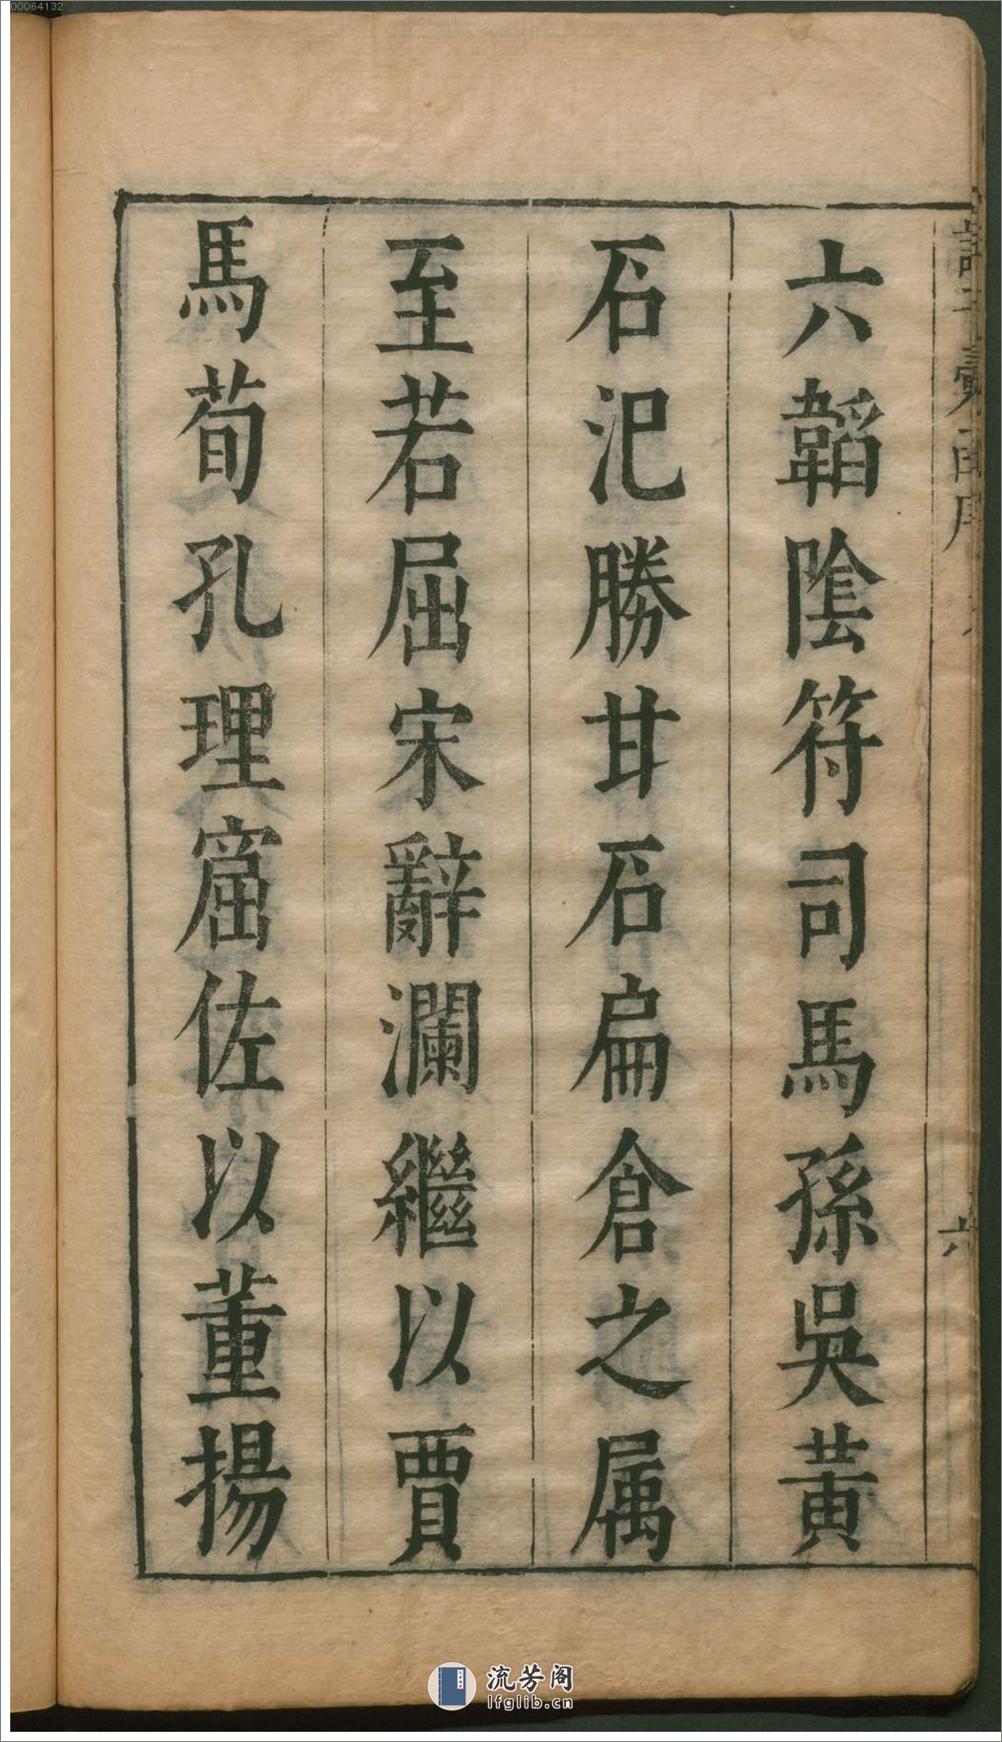 六韜陰符司馬孫吳黃
石汜勝甘石扁倉之属
至若屈宋辭瀾繼以賈
馬荀孔理窟佐以董揚
六
00064132
流芳阁
lfglib.cn